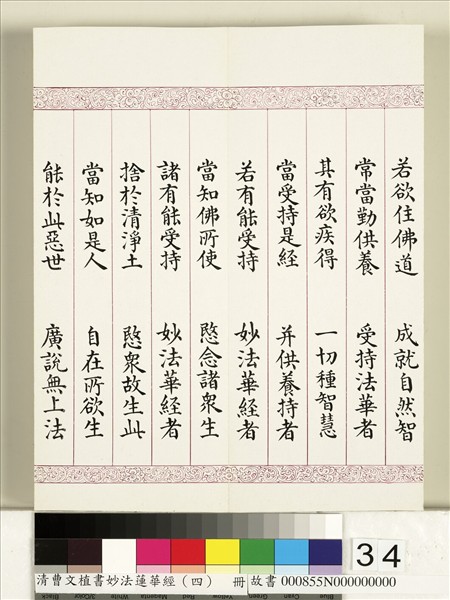 若欲住佛道 成就自然智
常當勤供養 受持法華者
其有欲疾得 一切種智慧
當受持是経 并供養持者
若有能受持 妙法華経者
當知佛所使 愍念諸衆生
諸有能受持 妙法華経者
捨於清淨土 愍衆故生此
當知如是人 自在所欲生
能於此惡世 廣說無上法
34
清曹文植書妙法蓮華經（四） 冊 故書 000855N000000000
Black 3/Color White Magenta Red Yellow Green Cyan Blue